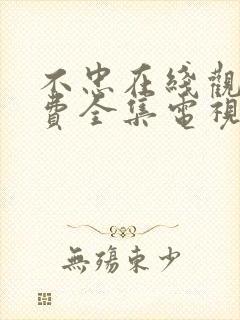 不忠在綫觀
費全集電視
無殤東少